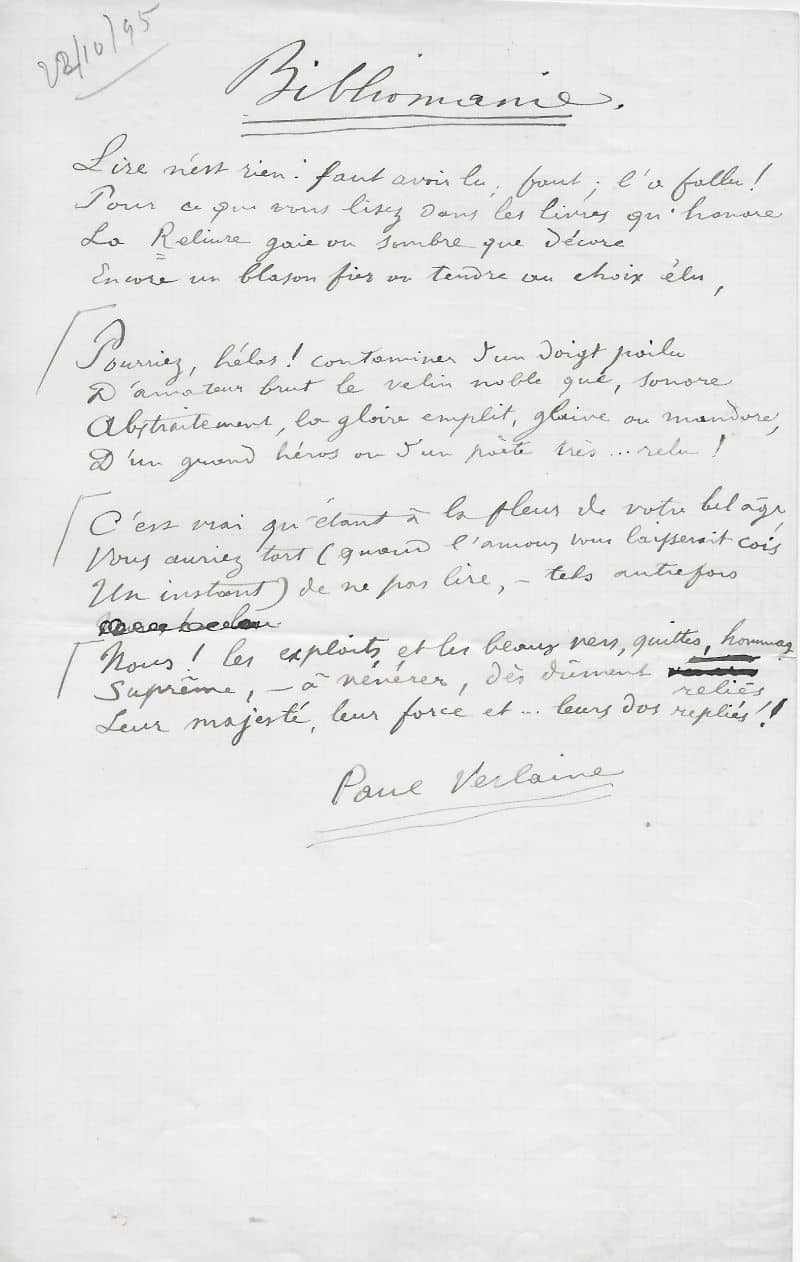 22/10/95
Bibliomanie.
Lire n'est rien : faut avoir lu, faut, l'a fallu !
Pour ce que vous lisez dans les livres qu'honore
La Reliure gaie ou sombre que décore
Encore un blason fier ou tendre au choix élu,
Pourriez, hélas ! contaminer d'un doigt poilu
D'amateur brut le velin noble que, sonore
Abstraitement, la gloire emplit, glaive ou mandore,
D'un grand héros ou d'un poète très ... relu !
C'est vrai qu'étant à la fleur de votre bel âge
Vous auriez tort (quand l'amour vous laisserait cois
Un instant) de ne pas lire, — tels autrefois
Nous ! les exploits et les beaux vers, quittes, hommage
Suprême, — à vénérer, dès dûment reliés
Leur majesté, leur force et ... leurs dos repliés !
Paul Verlaine